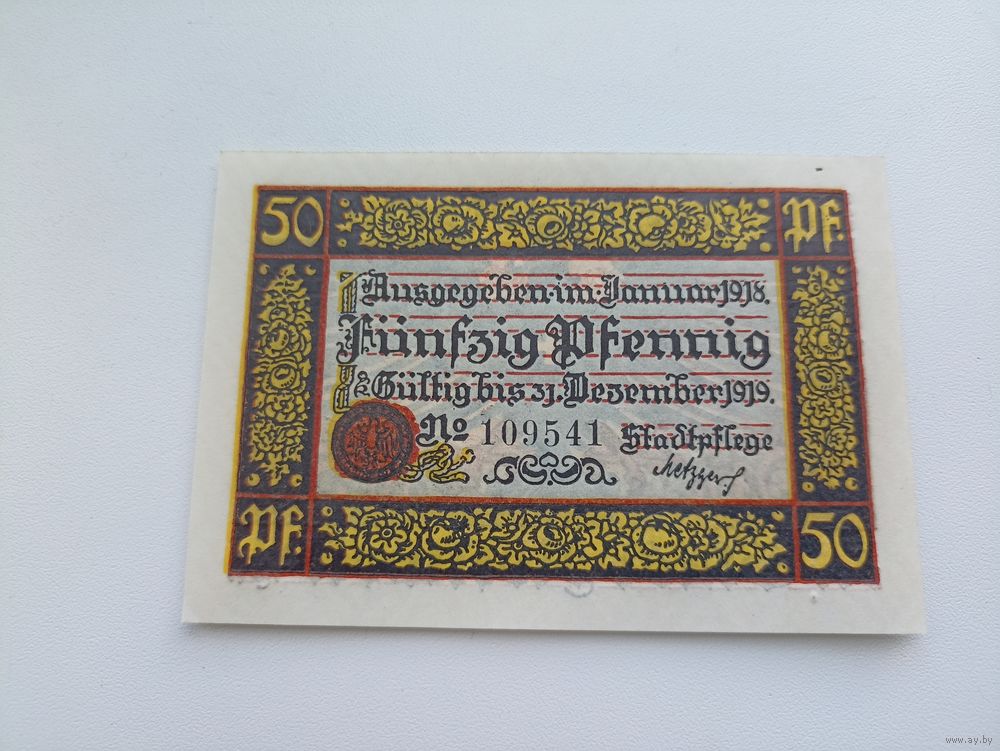 50 Pf.
Ausgegeben im Januar 1918.
Fünfzig Pfennig
Gültig bis 31. Dezember 1919.
No 109541 Stadtpflege
Metzger
Pf. 50
www.ay.by